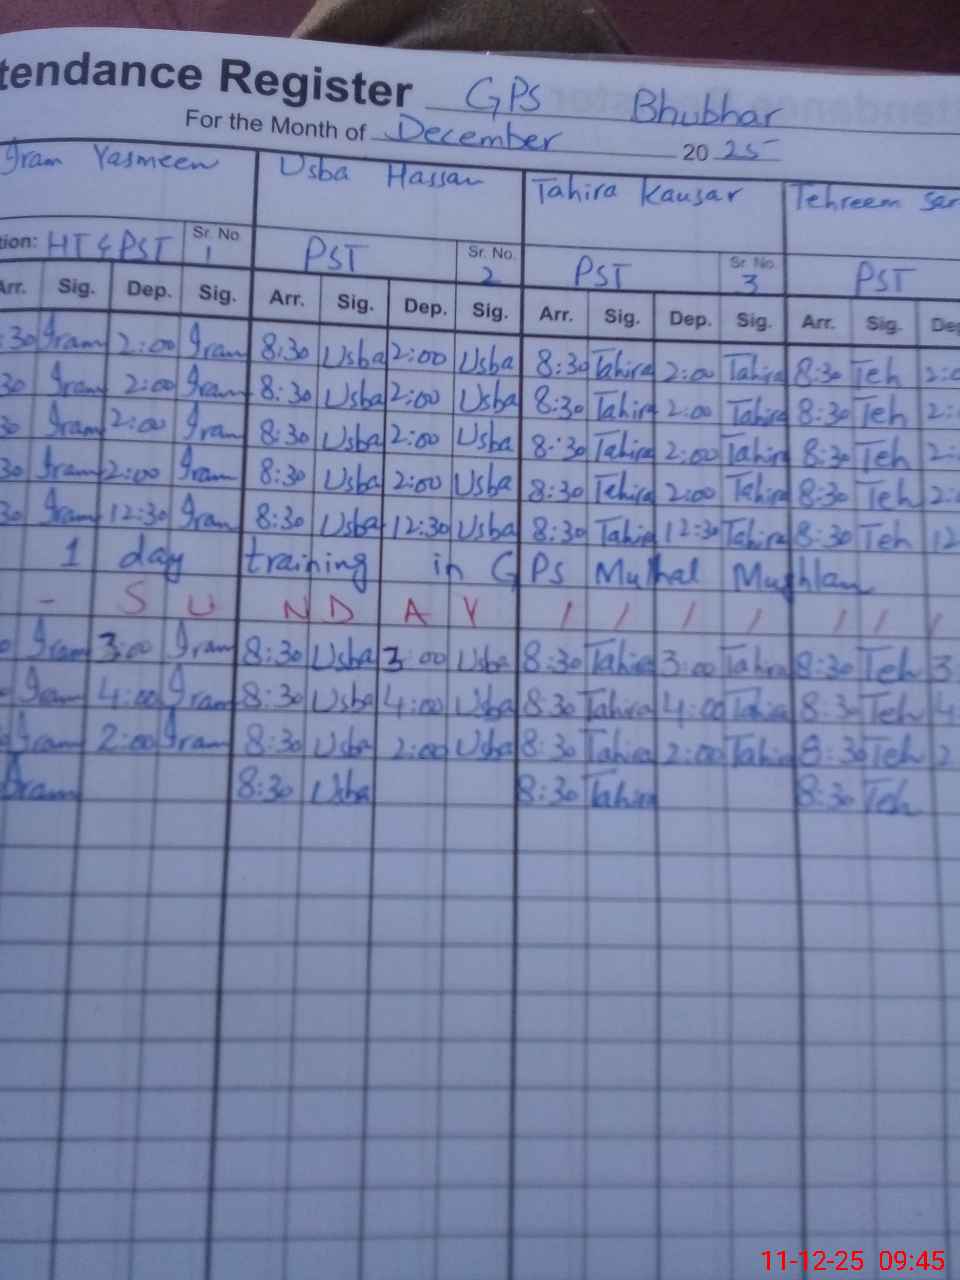 tendance Register GPS Bhubhar
For the Month of December 2025
Iram Yasmeen Usba Hassan Tahira Kausar Tehreem Sar
tion: HT & PST Sr. No. 1 PST Sr. No. 2 PST Sr. No. 3 PST
Arr. Sig. Dep. Sig. Arr. Sig. Dep. Sig. Arr. Sig. Dep. Sig. Arr. Sig. Dep
:30 Iram 2:00 Iram 8:30 Usba 2:00 Usba 8:30 Tahira 2:00 Tahira 8:30 Teh 2:0
30 Iram 2:00 Iram 8:30 Usba 2:00 Usba 8:30 Tahira 2:00 Tahira 8:30 Teh 2:
30 Iram 2:00 Iram 8:30 Usba 2:00 Usba 8:30 Tahira 2:00 Tahira 8:30 Teh 2:
30 Iram 2:00 Iram 8:30 Usba 2:00 Usba 8:30 Tahira 2:00 Tahira 8:30 Teh 2:
30 Iram 12:30 Iram 8:30 Usba 12:30 Usba 8:30 Tahira 12:30 Tahira 8:30 Teh 12
1 day training in GPS Muthal Mughlan
- S U N D A Y / / / / / / /
Iram 3:00 Iram 8:30 Usba 3:00 Usba 8:30 Tahira 3:00 Tahira 8:30 Teh 3
Iram 4:00 Iram 8:30 Usba 4:00 Usba 8:30 Tahira 4:00 Tahira 8:30 Teh 4
Iram 2:00 Iram 8:30 Usba 2:00 Usba 8:30 Tahira 2:00 Tahira 8:30 Teh 2
Iram 8:30 Usba 8:30 Tahira 8:30 Teh
11-12-25 09:45